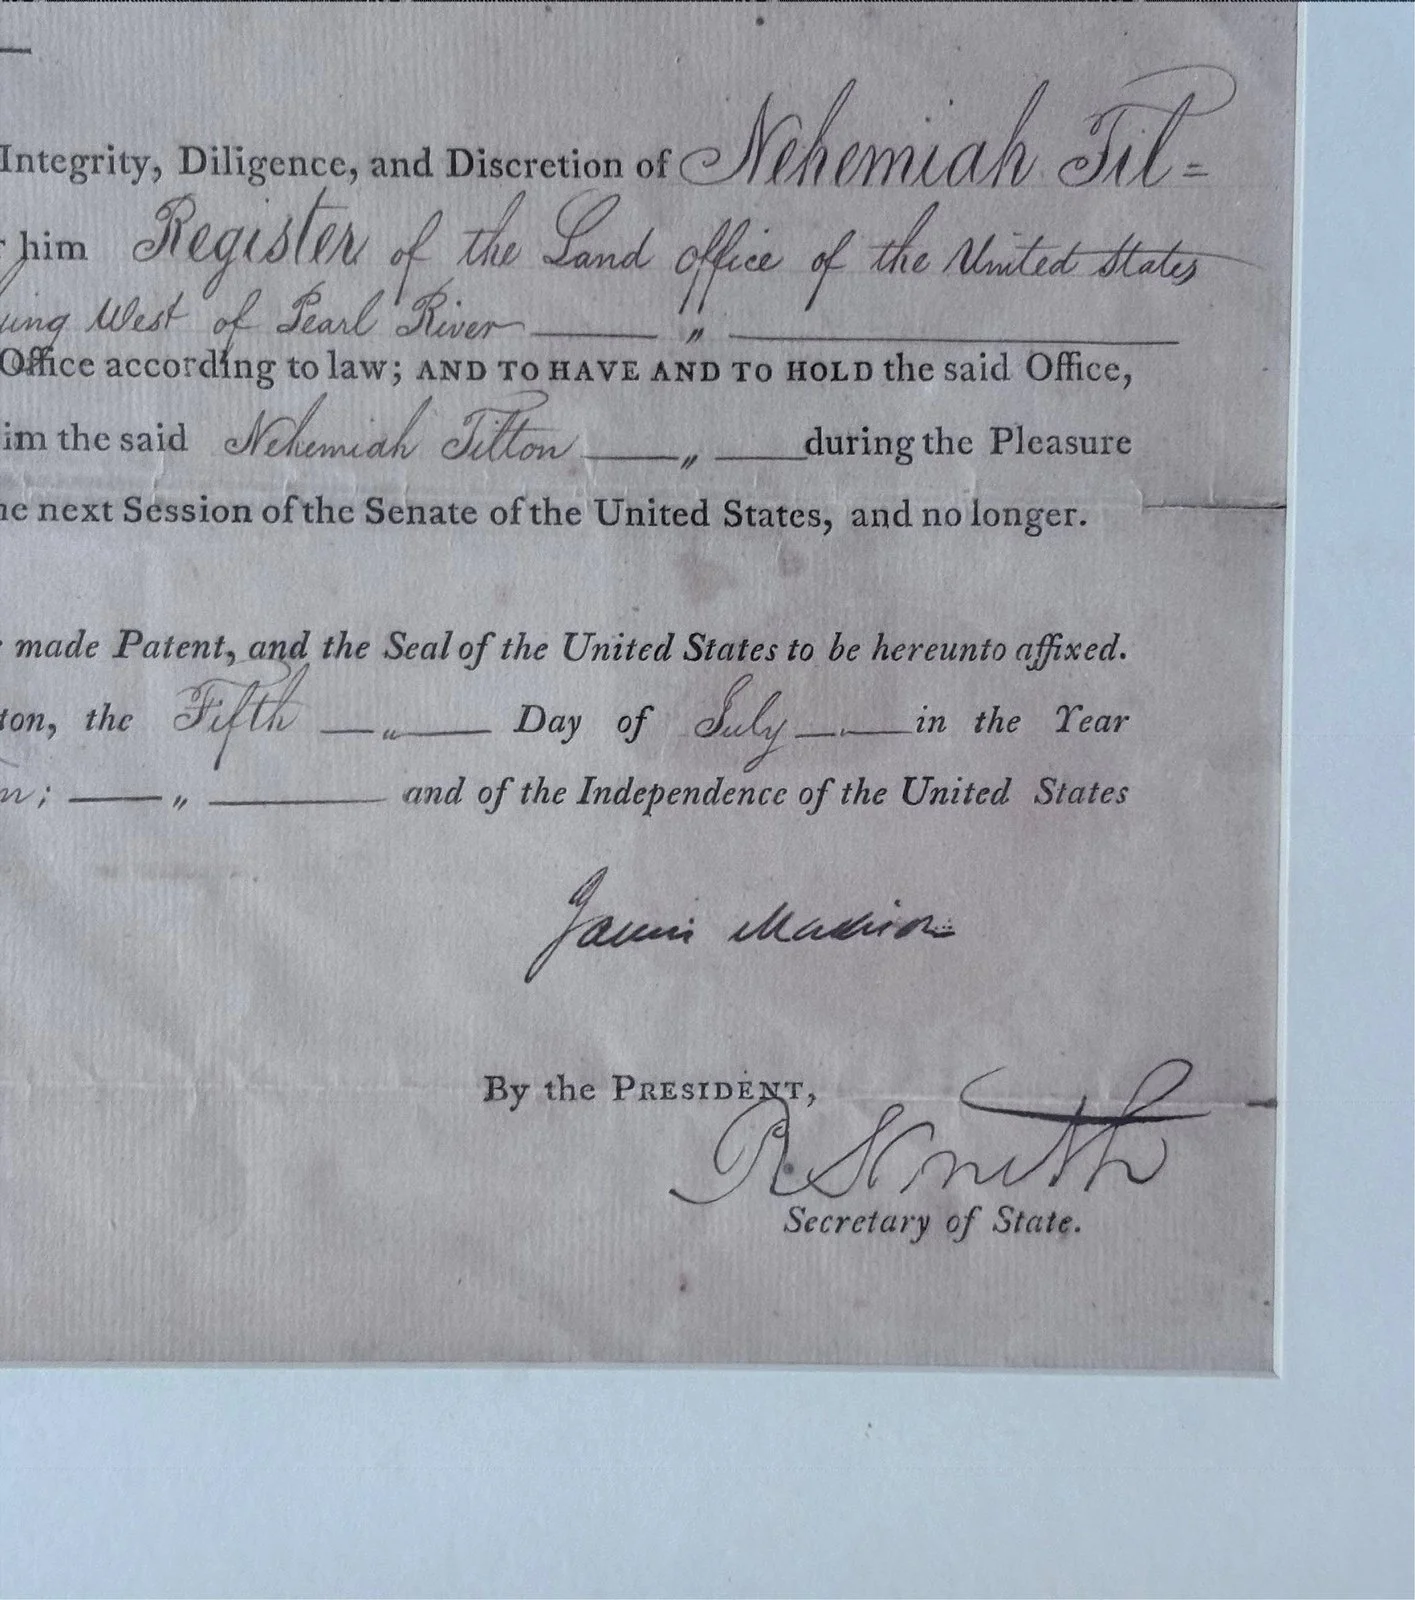 Integrity, Diligence, and Discretion of Nehemiah Til=
him Register of the Land office of the United States
West of Pearl River — „ —
Office according to law; AND TO HAVE AND TO HOLD the said Office,
im the said Nehemiah Tilton — „ — during the Pleasure
he next Session of the Senate of the United States, and no longer.
made Patent, and the Seal of the United States to be hereunto affixed.
ton, the Fifth — „ — Day of July — in the Year
n; — „ — and of the Independence of the United States
James Madison
By the PRESIDENT,
R Smith
Secretary of State.